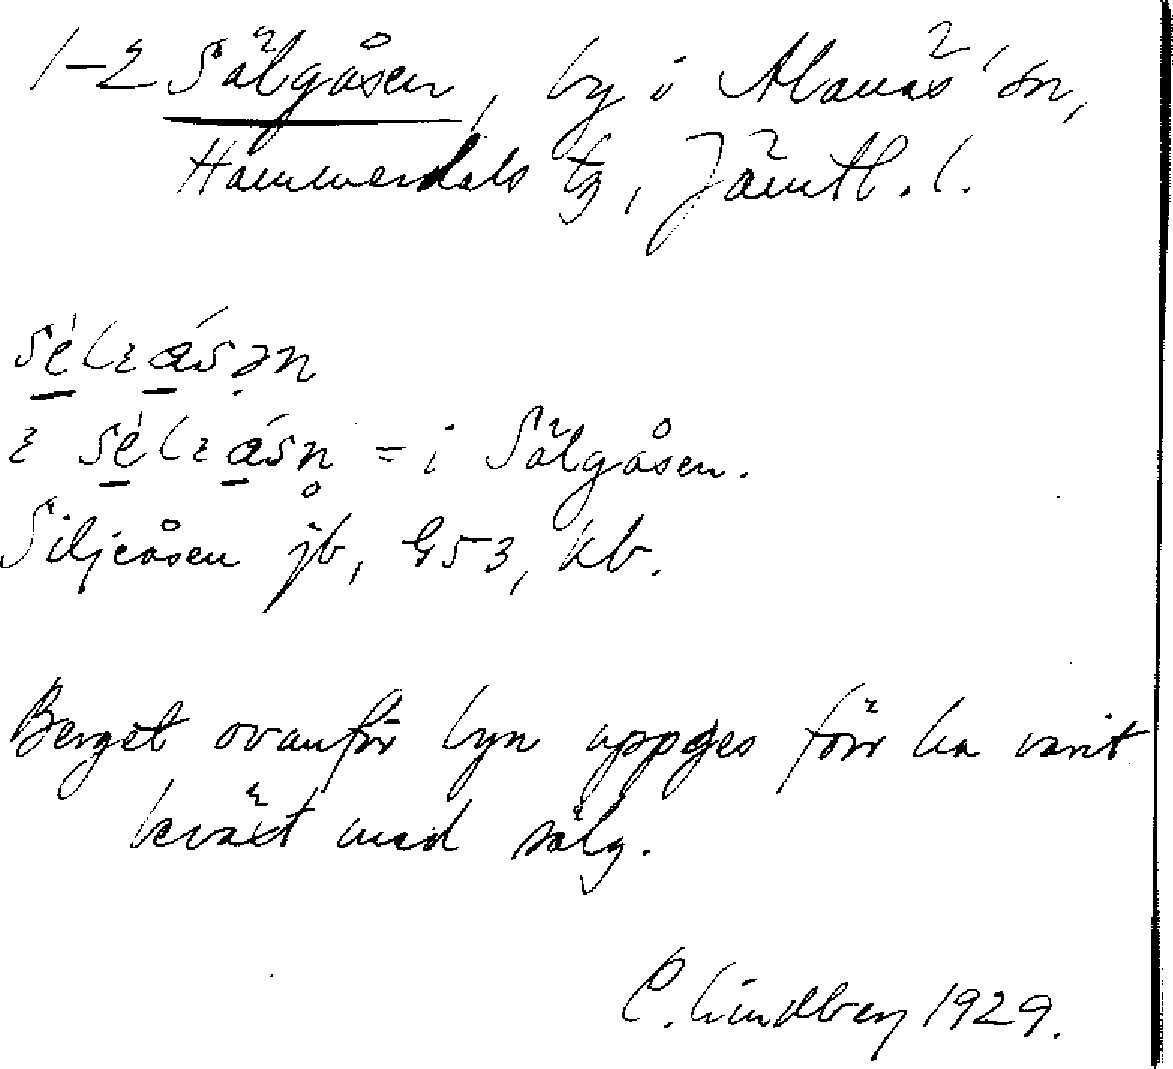 1-2 Sälgåsen, by i Alanäs sn,
Hammerdals tg, Jämtl. l.
i Sälgåsen.
Siljeåsen jb, G53, kb.
Berget ovanför byn uppges förr ha varit
beväxt med sälg.
C. Lindberg 1929.